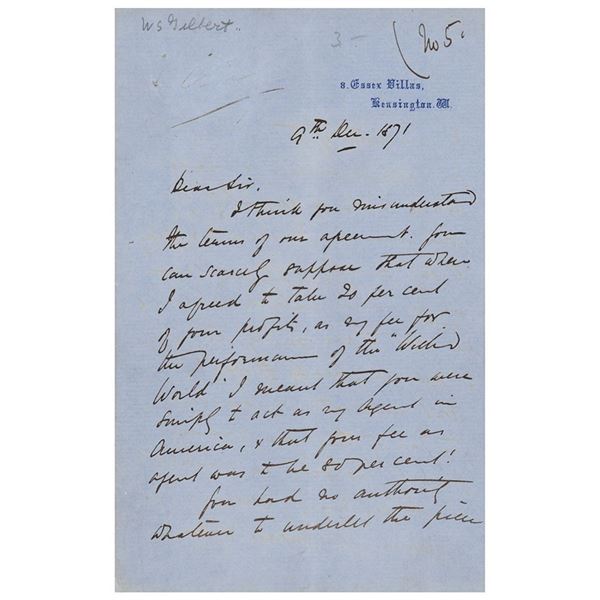 W S Gilbert
3 -
No 5.
8. Essex Villas,
Kensington. W.
9th Dec. 1871
Dear Sir.
I think you misunderstand
the terms of our agreement. You
can scarcely suppose that when
I agreed to take 20 per cent
of your profits, as my fee for
the performance of the "Wicked
World" I meant that you were
simply to act as my Agent in
America, & that your fee as
agent was to be 80 per cent!
You had no authority
whatever to underlet the piece